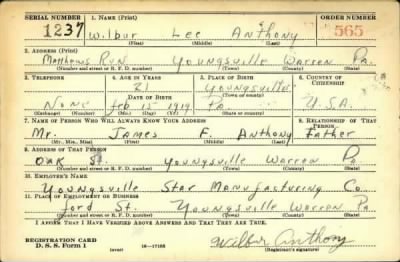 SERIAL NUMBER 1. NAME (Print) ORDER NUMBER
1237 Wilbur Lee Anthony 565
(First) (Middle) (Last)
2. ADDRESS (Print)
Matthews Run Youngsville Warren Pa.
(Number and street or R. F. D. number) (Town) (County) (State)
3. TELEPHONE 4. AGE IN YEARS 5. PLACE OF BIRTH 6. COUNTRY OF CITIZENSHIP
21 Youngsville
DATE OF BIRTH (Town or county)
None Feb 15 1919 Pa U.S.A.
(Mo.) (Day) (Yr.) (State or country)
7. NAME OF PERSON WHO WILL ALWAYS KNOW YOUR ADDRESS 8. RELATIONSHIP OF THAT PERSON
Mr. James F. Anthony Father
(Mr., Mrs., Miss) (First) (Middle) (Last)
9. ADDRESS OF THAT PERSON
Oak St. Youngsville Warren Pa
(Number and street or R. F. D. number) (Town) (County) (State)
10. EMPLOYER'S NAME
Youngsville Star Manufacturing Co.
11. PLACE OF EMPLOYMENT OR BUSINESS
Ford St. Youngsville Warren Pa
(Number and street or R. F. D. number) (Town) (County) (State)
I AFFIRM THAT I HAVE VERIFIED ABOVE ANSWERS AND THAT THEY ARE TRUE.
REGISTRATION CARD
D. S. S. Form 1 (over) 16—17105 Wilbur Anthony
(Registrant's signature)